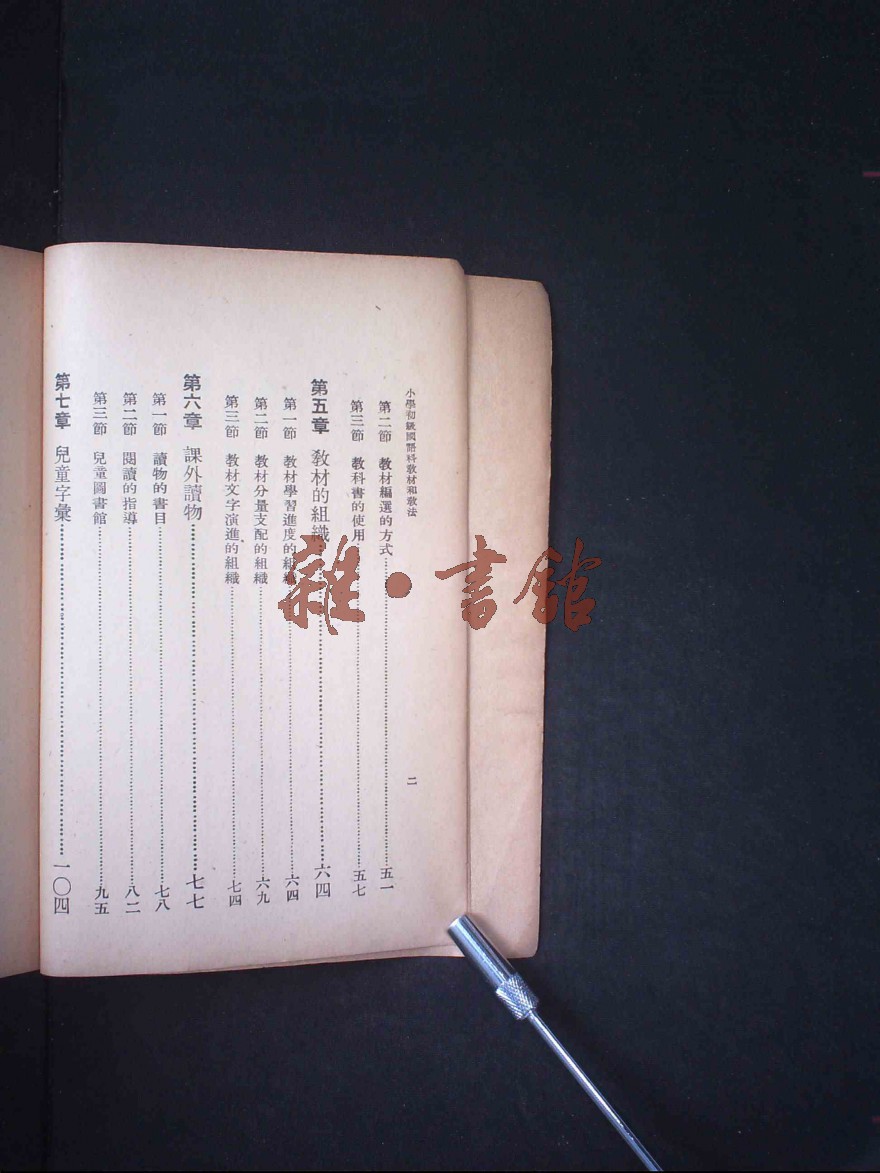 小學初級國語科教材和教法
二
第二節 教材編選的方式 五一
第三節 教科書的使用 五七
第五章 教材的組織 六四
第一節 教材學習進度的組織 六四
第二節 教材分量支配的組織 六九
第三節 教材文字演進的組織 七四
第六章 課外讀物 七七
第一節 讀物的書目 七八
第二節 閱讀的指導 八二
第三節 兒童圖書館 九五
第七章 兒童字彙 一〇四
雜·書館